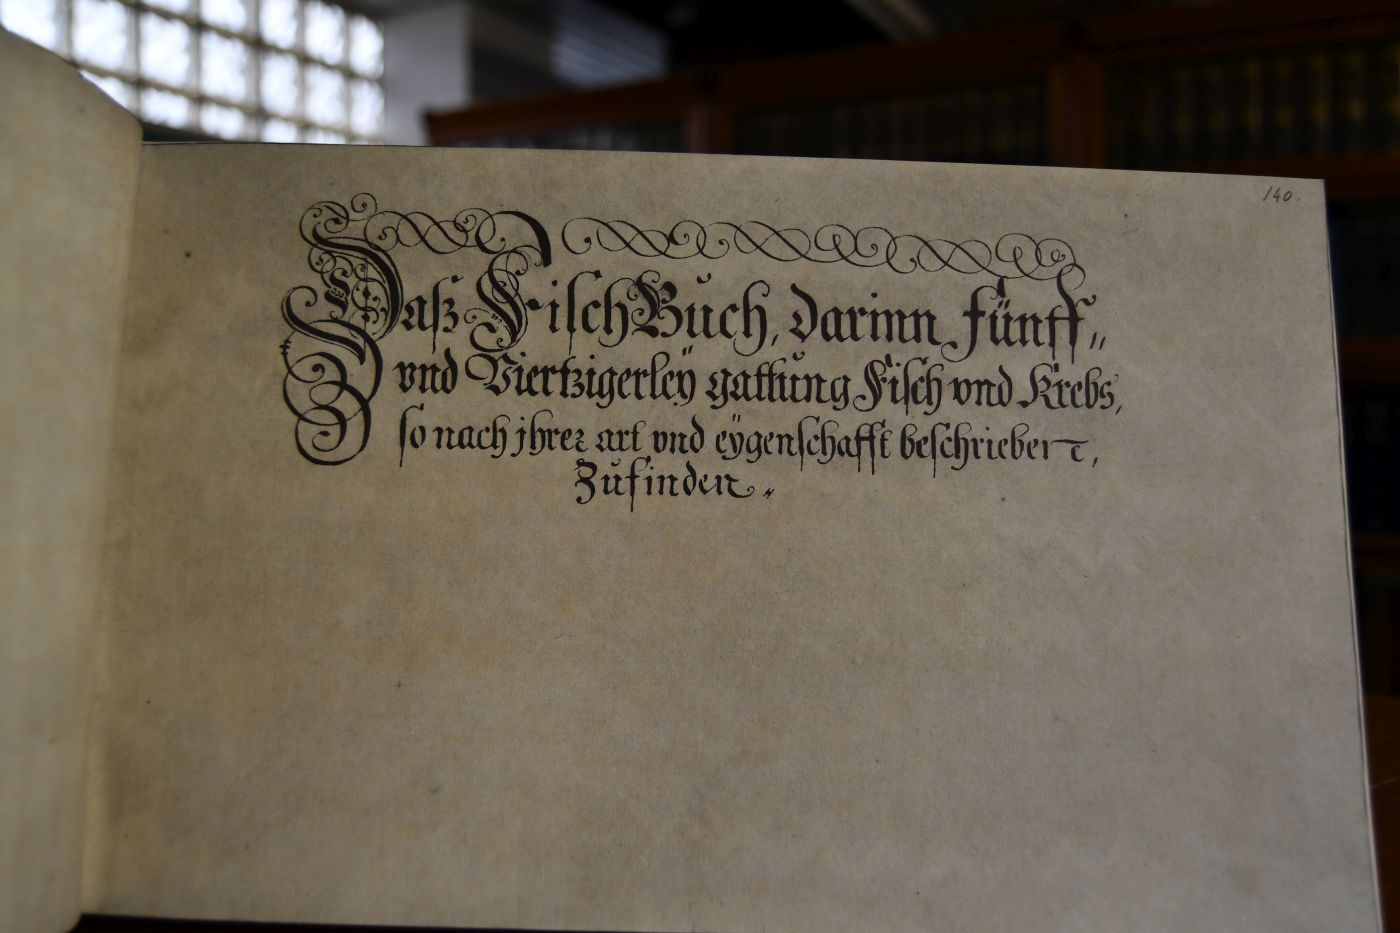 140.
Daß Fisch Buch, darinn fünff„
vnd Viertzigerleÿ gattŭng Fisch vnd Krebs,
so nach jhrer art vnd eÿgenschafft beschrieben,
Zŭfinden„